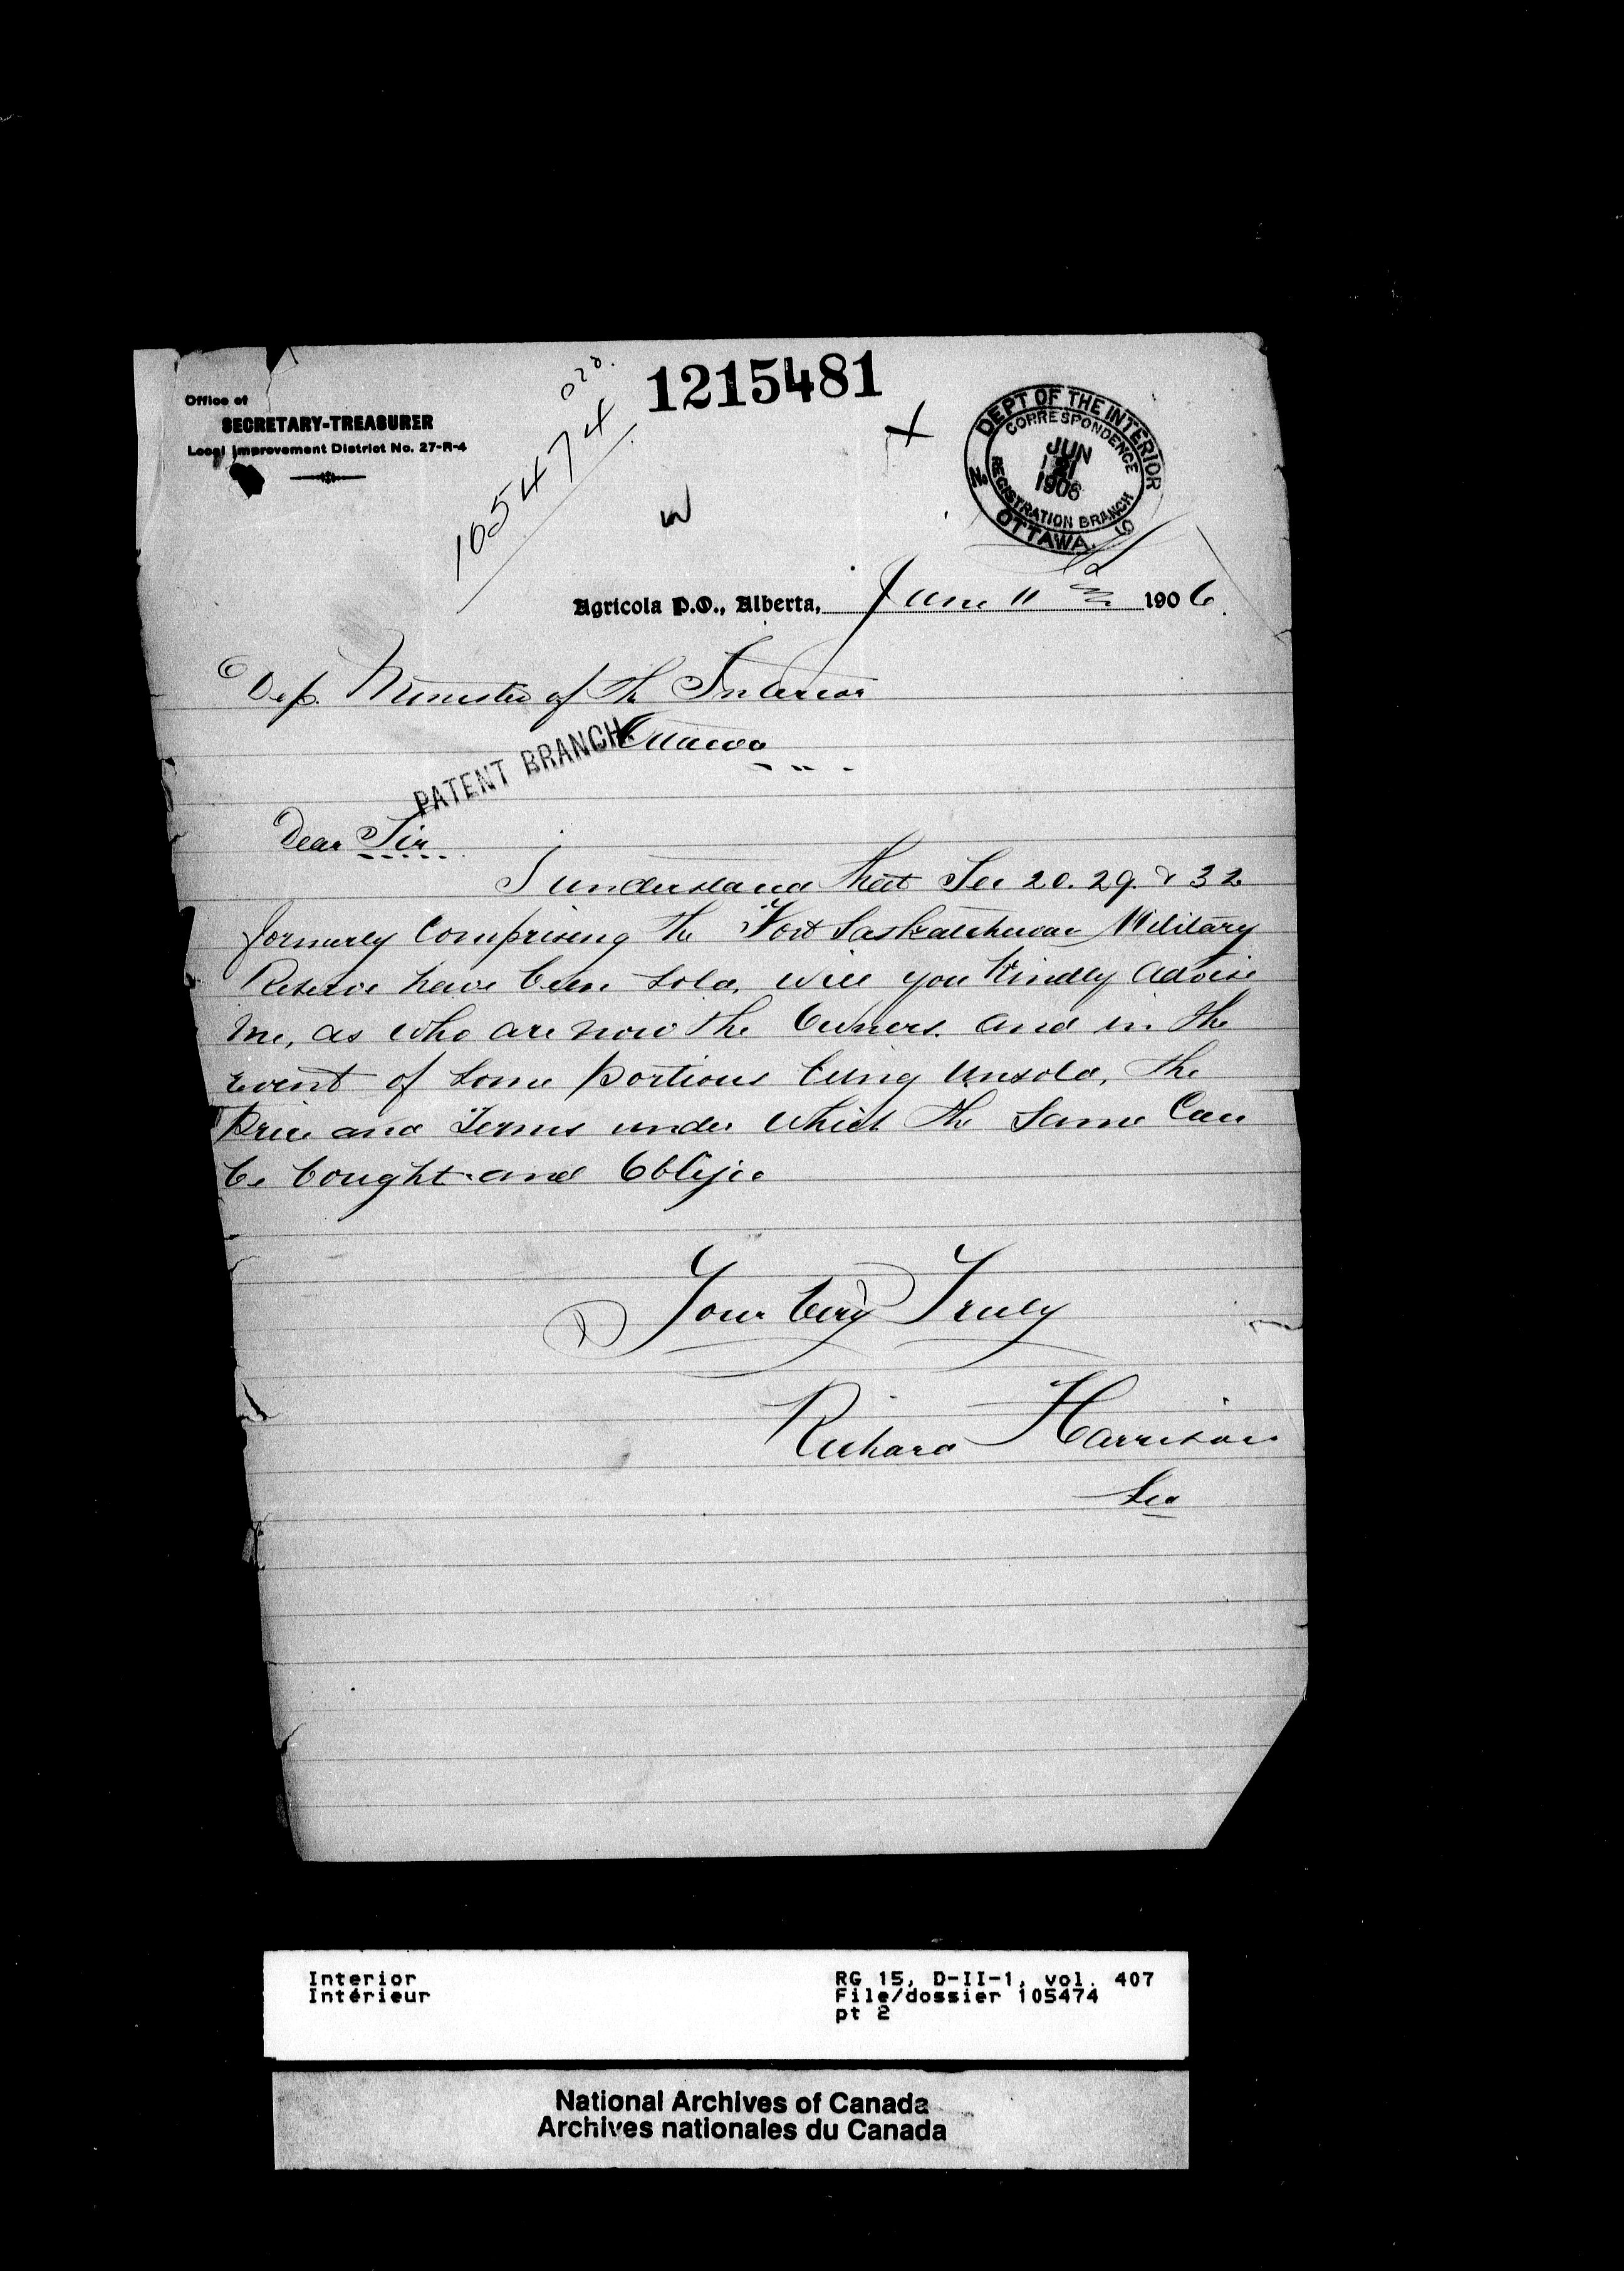 1215481
Office of
SECRETARY-TREASURER
Local Improvement District No. 27-R-4
105474
W
DEPT OF THE INTERIOR
CORRESPONDENCE
JUN
21
1906
REGISTRATION BRANCH
No
OTTAWA.
Agricola P.O., Alberta, June 11 1906.
Dep. Minister of the Interior
Ottawa
PATENT BRANCH.
Dear Sir
I understand that Sec 20. 29. & 32
formerly Comprising the Fort Saskatchewan Military
Reserve have been sold, will you Kindly advise
me, as who are now the Owners. and in the
Event of some portions being unsold, the
Price and Terms under which the Same Can
be bought and Oblige
Your Very Truly
Richard Harrison
Sec
Interior
Intérieur
RG 15, D-II-1, vol. 407
File/dossier 105474
pt 2
National Archives of Canada
Archives nationales du Canada